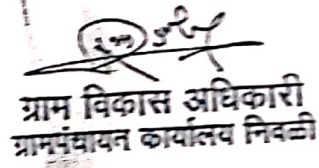 ग्राम विकास अधिकारी
ग्रामपंचायत कार्यालय निवळी